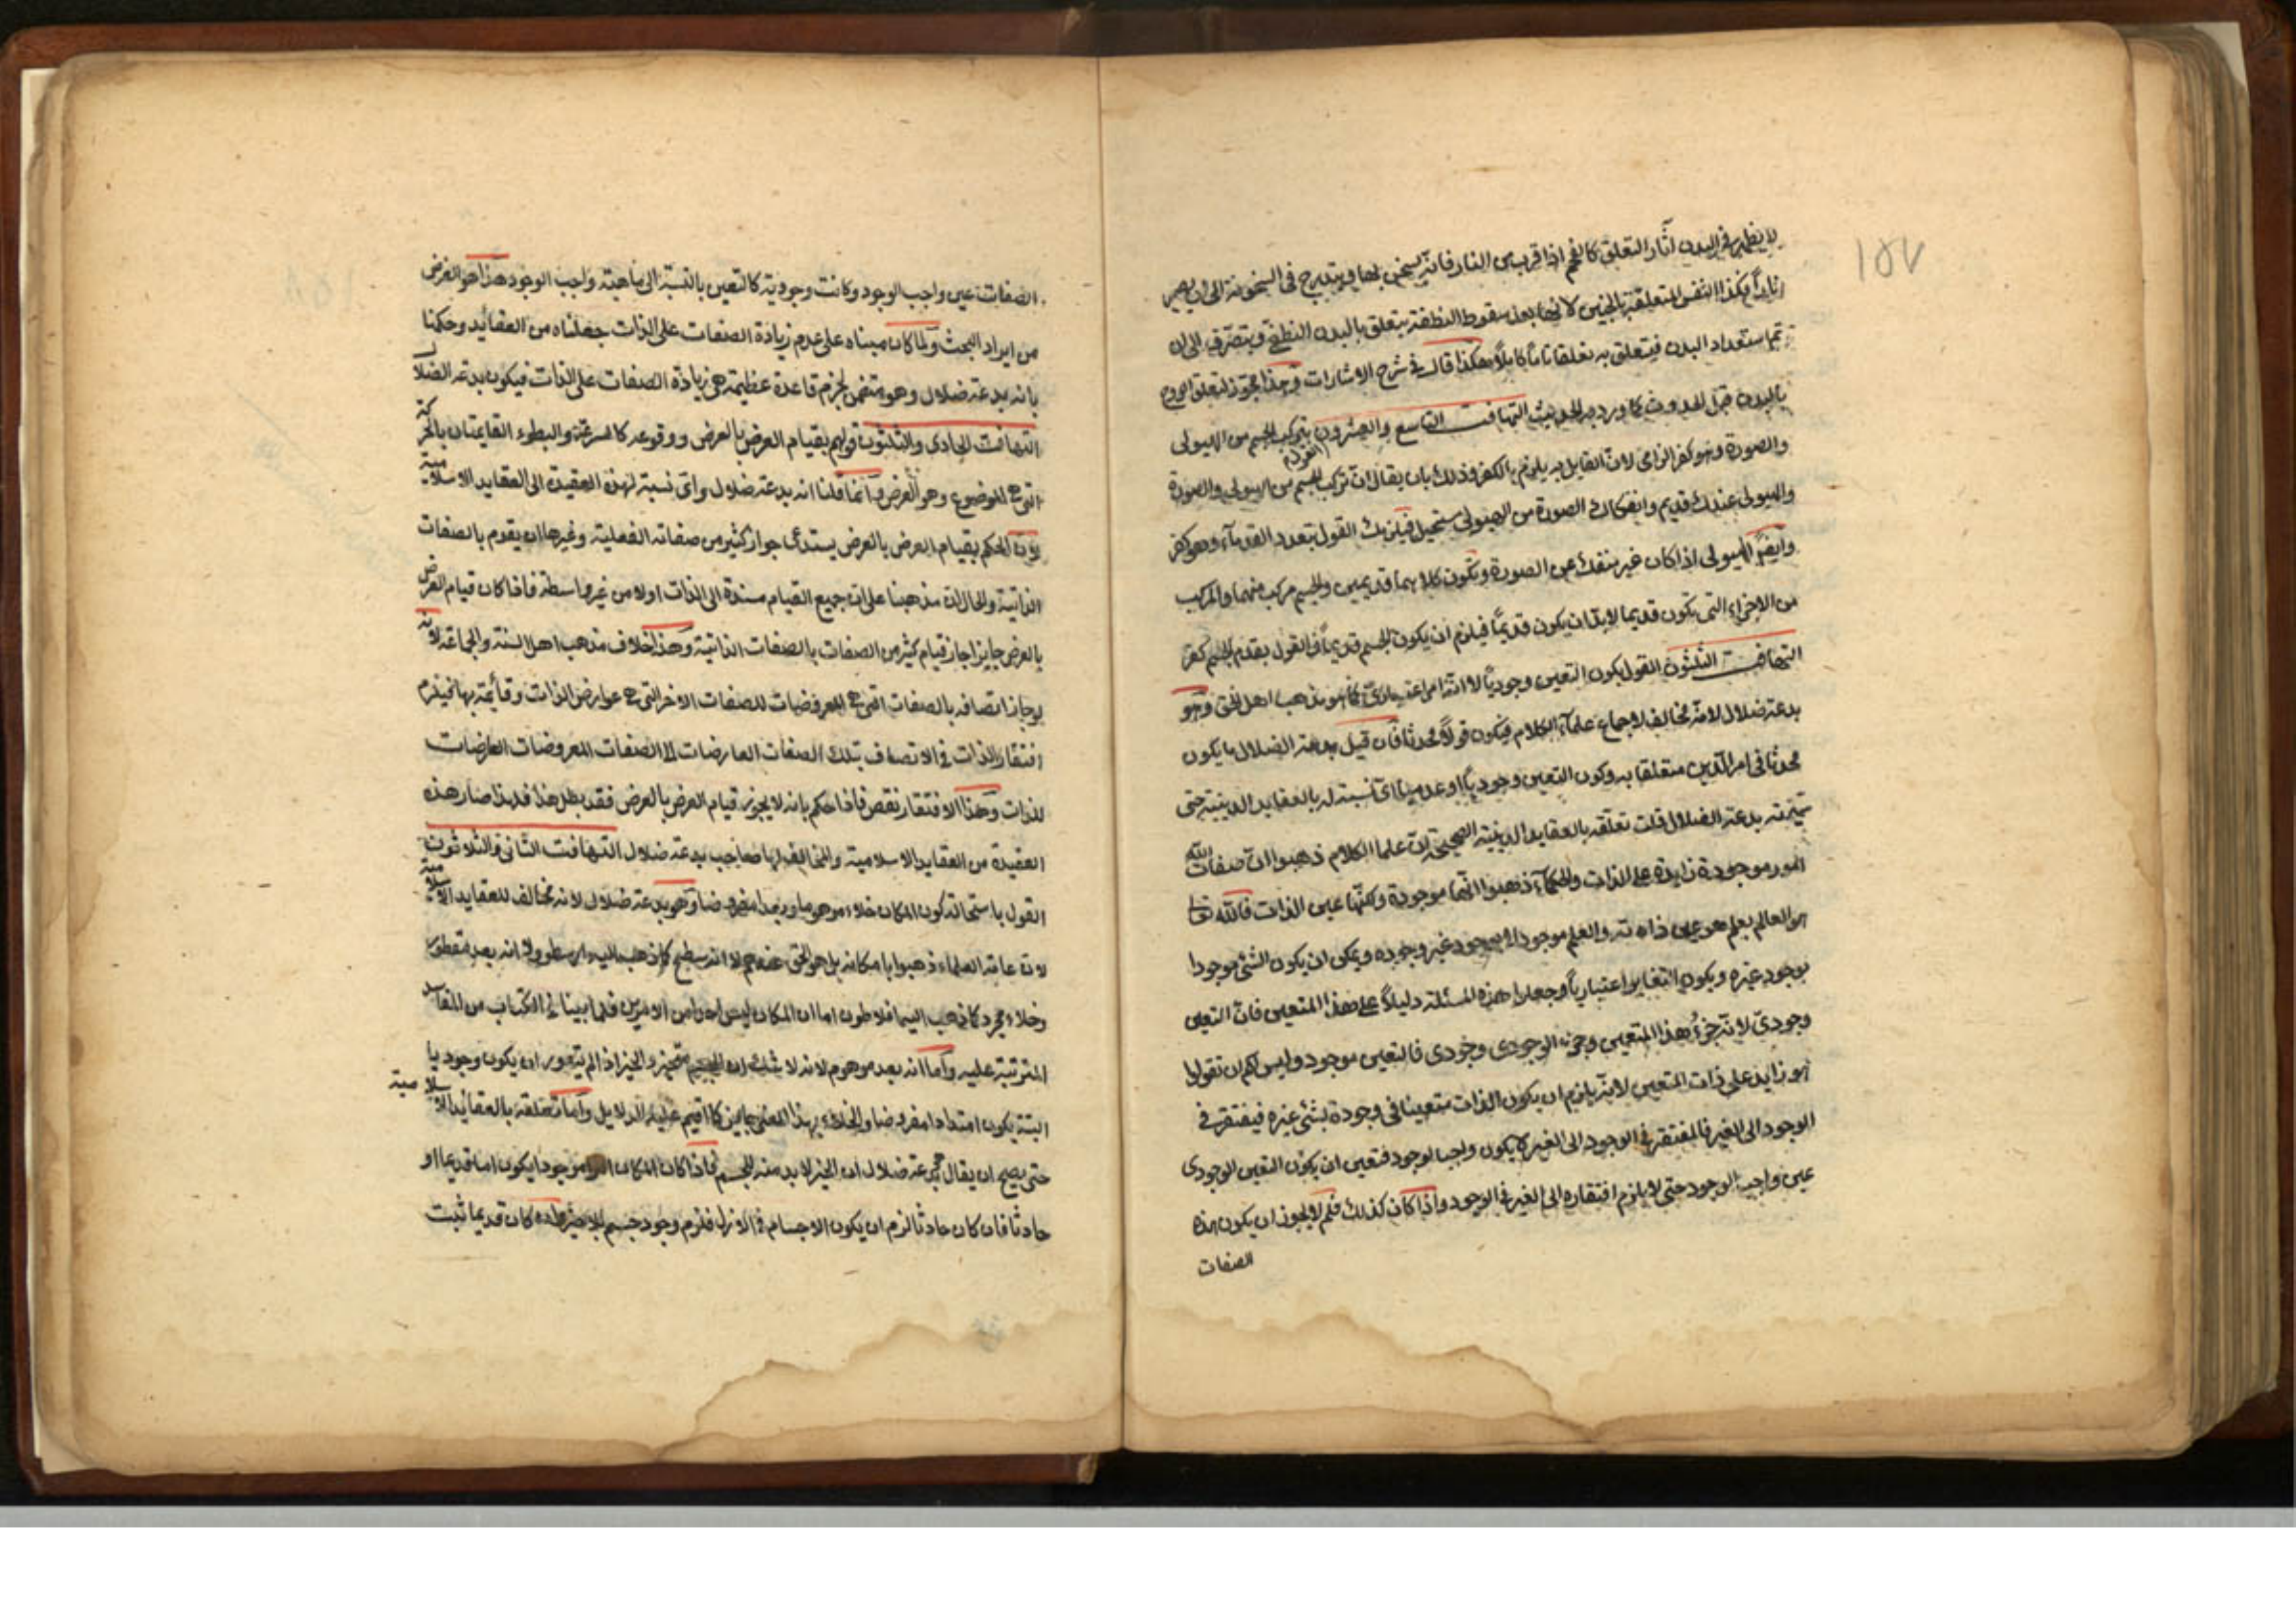 ١٥٧
لا يظهر في البدن آثار التعلق كالفحم اذا قرب من النار فانه يسخن بها ويتدرج في السخونة الى ان يصير
نارا فكذا النفس المتعلقة بالجنين لانها بعد سقوط النطفة يتعلق بالبدن النطفي ويتصرف الى ان
تم استعداد البدن فيتعلق به تعلقا تاما كاملا هكذا قال في شرح الاشارات وهذا مجوز لتعلق الروح
بالبدن قبل الحدوث كما ورد به الحديث التهافت التاسع والعشرون بتركب الجسم من الهيولى
والصورة وهو كفر الزامى لان القايل به يلزم بالكفر وذلك بان يقال ان تركب الجسم من الهيولى والصورة
والهيولى عندك قديم وانفكاك الصورة من الهيولى مستحيل فيلزمك القول بتعدد القدماء وهو كفر
وايضا الهيولى اذا كان غير منفك عن الصورة وتكون كلاهما قديمين والجسم مركب منهما والمركب
من الاجزاء التى تكون قديما لابد ان يكون قديما فيلزم ان يكون الجسم قديما فالقول بقدم الجسم كفر
التهافت الثلثون القول بكون التعين وجوديا لا انه امر اعتبارى كما هو مذهب اهل الحق وهو
بدعة ضلال لانه مخالف لاجماع علماء الكلام فيكون قولا محدثا فان قيل بدعة الضلال ما يكون
محدثا فى امر الدين متعلقا به وكون التعين وجوديا او عدميا اى نسبة له بالعقايد الدينية حتى
تسميته بدعة الضلال قلت تعلقه بالعقايد الدينية الصحيحة ان علما الكلام ذهبوا ان صفات الله
امور موجودة زايدة على الذات والحكماء ذهبوا انها موجودة ولكنها عين الذات فالله تعا
هو العالم بعلم هو عين ذاته والعلم موجود لا بوجود غير وجوده ويمكن ان يكون الشئ موجودا
بوجود غيره ويكون التغاير اعتباريا وجعلوا هذه المسئلة دليلا على هذا المتعين فان التعين
وجودى لانه جزء هذا المتعين وجزء الوجودى وجودى فالتعين موجود وليس لكم ان تقولوا
هو زايد على ذات المتعين لانه يلزم ان يكون الذات متعينا فى وجودة بشئ غيره فيفتقر فى
الوجود الى الغير فالمفتقر فى الوجود الى الغير لا يكون واجب الوجود فتعين ان يكون التعين الوجودى
عين واجب الوجود حتى لا يلزم افتقاره الى الغير فى الوجود واذا كان كذلك فلم لا يجوز ان يكون هذه
الصفات
الصفات عين واجب الوجود وكانت وجودية كالتعين بالنسبة الى ماهية واجب الوجود هذا هو الغرض
من ايراد البحث ولما كان مبناه على عدم زيادة الصفات على الذات جعلناه من العقايد وحكمنا
بانه بدعة ضلال وهو متضمن لخرم قاعدة عظيمة هى زيادة الصفات على الذات فيكون بدعة الضلال
التهافت الحادى والثلثون قولهم بقيام العرض بالعرض ووقوعه كالسرعة والبطوء القايمتان بالحركة
التى هى الموضوع وهو العرض وانما قلنا انه بدعة ضلال واى نسبة لهذه العقيدة الى العقايد الاسلامية
لان الحكم بقيام العرض بالعرض يستدعى جواز كثير من صفاته الفعلية وغيرها ان يقوم بالصفات
الذاتية والحال ان مذهبنا على ان جميع القيام مسندة الى الذات اولا من غير واسطة فاذا كان قيام العرض
بالعرض جايز اجاز قيام كثير من الصفات بالصفات الذاتية وهذا خلاف مذهب اهل السنة والجماعة لانه
لو جاز اتصافه بالصفات التى هى المعروضيات للصفات الاخر التى هى عوارض الذات وقائمة بها فيلزم
افتقار الذات فى الاتصاف بتلك الصفات العارضات الى الصفات المعروضات العارضات
للذات وهذا الافتقار نقص فاذا حكم بانه لا يجوز قيام العرض بالعرض فقد بطل هذا فلهذا صار هذه
العقيدة من العقايد الاسلامية والمخالف لها صاحب بدعة ضلال التهافت الثانى والثلاثون
القول باستحالة كون المكان خلاء موهوما وبعدا مفروضا وهو بدعة ضلال لانه مخالف للعقايد الاسلامية
لان عامة العلماء ذهبوا بامكانه بل هو الحق عندهم لا انه سطح كما ذهب اليه ارسطو ولا انه بعد مفطور
وخلاء مجرد كما ذهب اليه افلاطون اما ان المكان ليس احدا من الامرين فلما بينا فى الكتاب من المفاسد
المترتبة عليه واما انه بعد موهوم لانه لا شك ان الجسم متحيز والحيز اذا لم يتصور ان يكون وجوديا
البتة يكون امتدادا مفروضا والخلاء بهذا المعنى جايز كما اقيم عليه الدلايل واما تعلقه بالعقايد الاسلامية
حتى يصح ان يقال بدعة ضلال ان الحيز لابد منه للجسم فاذا كان المكان امرا موجودا يكون اما قديما او
حادثا فان كان حادثا لزم ان يكون الاجسام فى الازل فلزم وجود جسم بلا حيز كان قديما ثبت